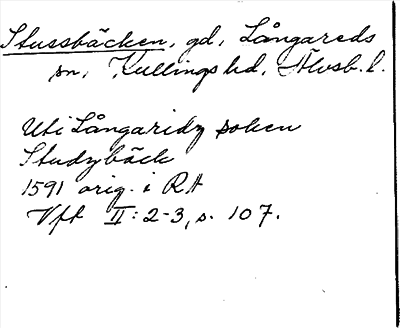 Stussbäcken, gd, Långareds
sn, Kullings hd, Älvsb. l.
Uti Långaridz soken
Studzbäck
1591 orig. i RA
Vft II: 2-3, s. 107.